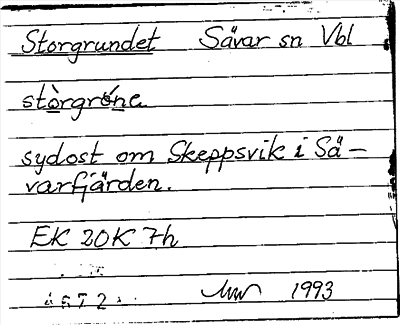 Storgrundet Sävar sn Vbl
stòrgróne
sydost om Skeppsvik i Sä-
varfjärden.
EK 20K 7h
1993